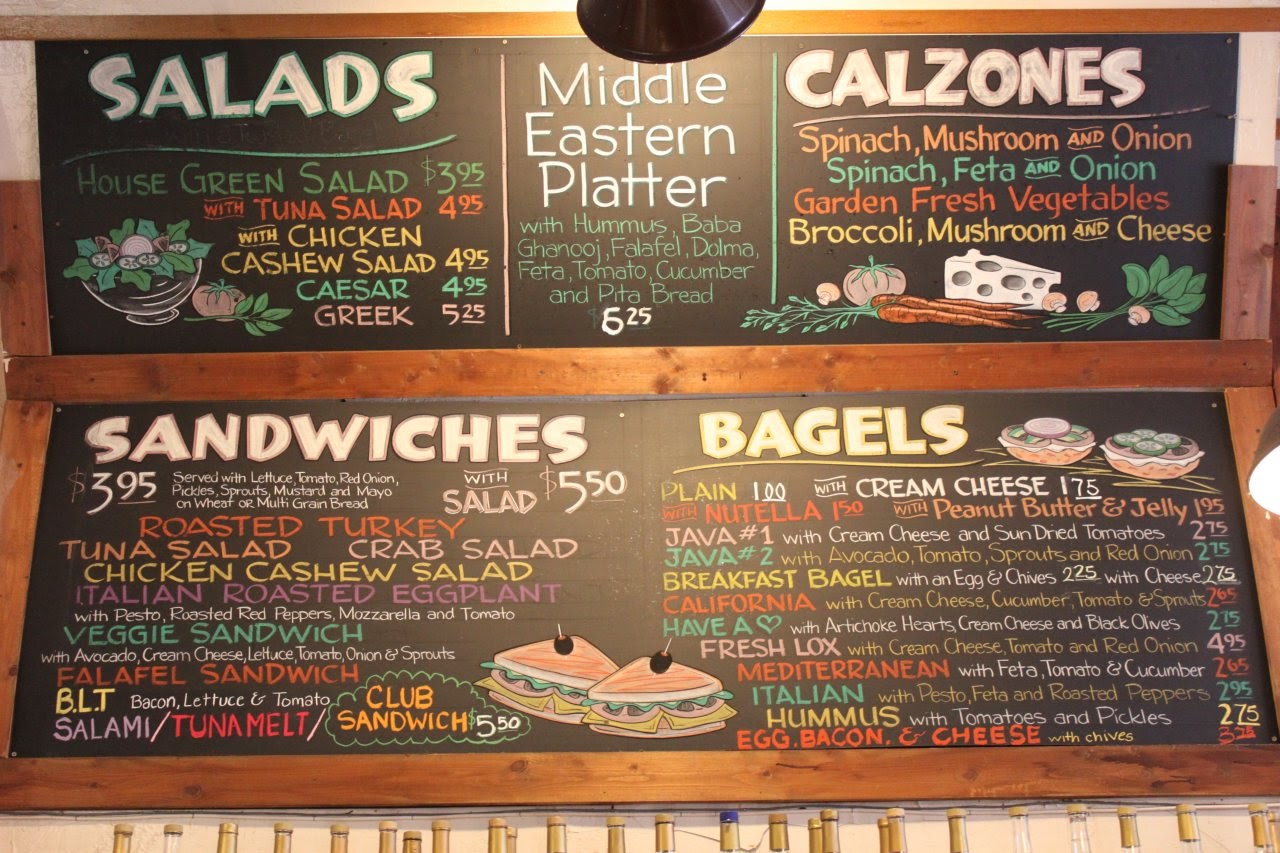 SALADS
HOUSE GREEN SALAD $3.95
WITH TUNA SALAD 4.95
WITH CHICKEN
CASHEW SALAD 4.95
CAESAR 4.95
GREEK 5.25
Middle
Eastern
Platter
with Hummus, Baba
Ghanooj, Falafel, Dolma,
Feta, Tomato, Cucumber
and Pita Bread
$6.25
CALZONES
Spinach, Mushroom AND Onion
Spinach, Feta AND Onion
Garden Fresh Vegetables
Broccoli, Mushroom AND Cheese
SANDWICHES
$3.95 Served with Lettuce, Tomato, Red Onion,
Pickles, Sprouts, Mustard and Mayo
on Wheat or Multi Grain Bread
WITH SALAD $5.50
ROASTED TURKEY
TUNA SALAD CRAB SALAD
CHICKEN CASHEW SALAD
ITALIAN ROASTED EGGPLANT
with Pesto, Roasted Red Peppers, Mozzarella and Tomato
VEGGIE SANDWICH
with Avocado, Cream Cheese, Lettuce, Tomato, Onion & Sprouts
FALAFEL SANDWICH
B.L.T Bacon, Lettuce & Tomato
SALAMI/TUNA MELT/
CLUB
SANDWICH $5.50
BAGELS
PLAIN 1.00 WITH CREAM CHEESE 1.75
WITH NUTELLA 1.50 WITH Peanut Butter & Jelly 1.95
JAVA #1 with Cream Cheese and Sun Dried Tomatoes 2.75
JAVA #2 with Avocado, Tomato, Sprouts and Red Onion 2.75
BREAKFAST BAGEL with an Egg & Chives 2.25 with Cheese 2.75
CALIFORNIA with Cream Cheese, Cucumber, Tomato & Sprouts 2.65
HAVE A ♡ with Artichoke Hearts, Cream Cheese and Black Olives 2.75
FRESH LOX with Cream Cheese, Tomato and Red Onion 4.95
MEDITERRANEAN with Feta, Tomato & Cucumber 2.65
ITALIAN with Pesto, Feta and Roasted Peppers 2.95
HUMMUS with Tomatoes and Pickles 2.75
EGG, BACON, & CHEESE with chives 3.75